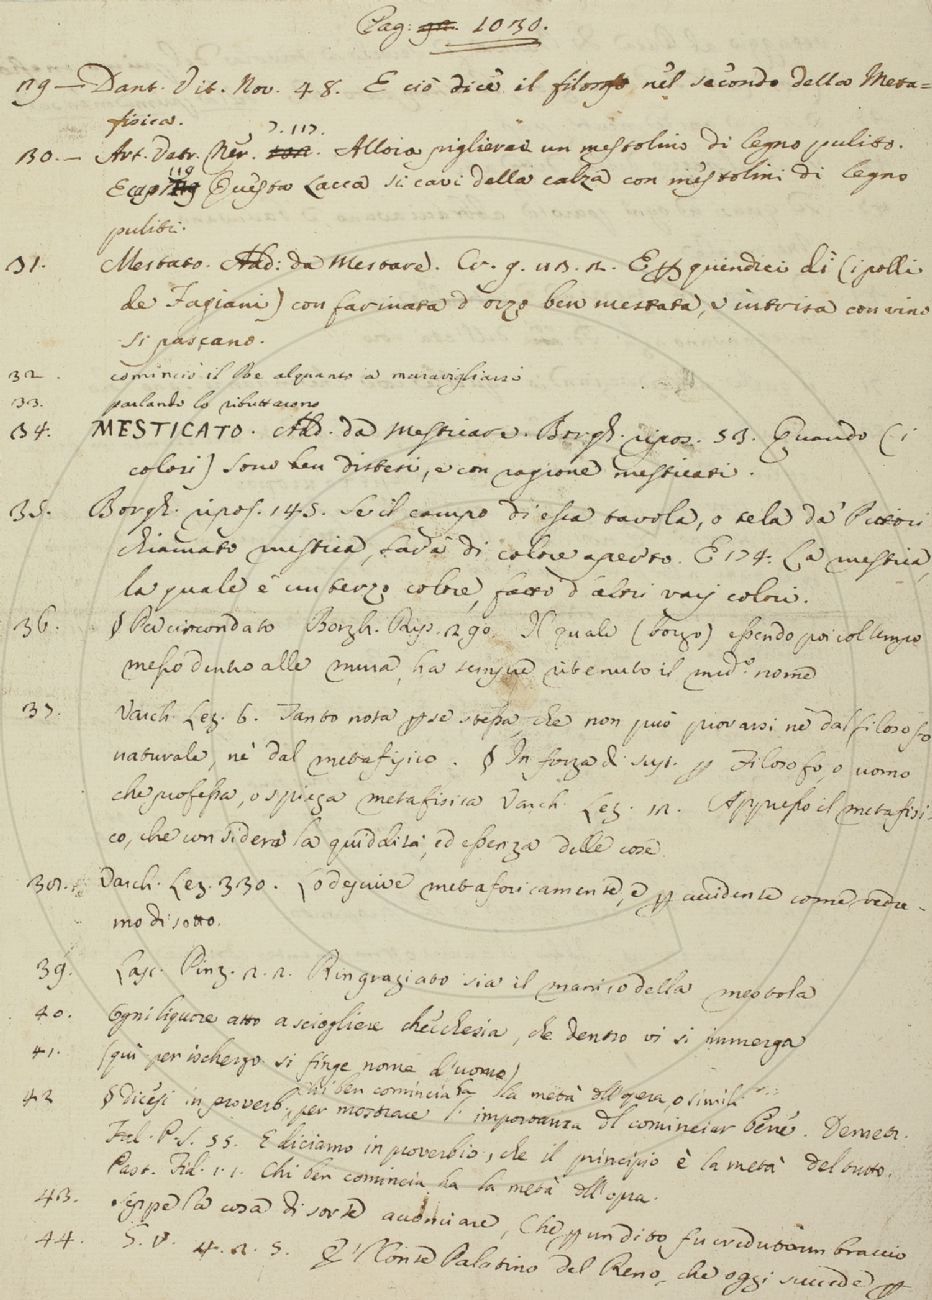 Pag: 1030.
129 — Dant. Vit. Nov. 48. E ciò dice il filosofo nel secondo della Meta=
fisica.
130. — Art. Vetr. Ner. 7. 117. Allora piglierai un mestolino di legno pulito.
E cap. 119 Questa Lacca si cavi della calza con mestolini di legno
puliti.
31. Mestato. Add: da Mestare. Cr. 9. 113. 2. E quindici dì (i polli
de Fagiani) con farinata d'orzo ben mestata, e intrisa con vino
si pascano.
32. cominciò il Re alquanto a maravigliarsi
33. parlando lo ributtarono
34. MESTICATO. Add. da Mesticare. Borgh. ripos. 53. Quando (i
colori) sono ben distesi, e con ragione mesticati.
35. Borgh. ripos. 145. Se il campo di essa tavola, o tela da' Pittori
chiamato mestica, sarà di colore aperto. E 174. La mestica,
la quale è un terzo colore, fatto d'altri varj colori.
36. § Per circondato Borgh. Rip. 290 Il quale (borgo) essendo poi col tempo
messo dentro alle mura, ha sempre ritenuto il med.o nome
37. Varch. Lez. 6. Tanto nota per se stessa, che non può provarsi nè dal filosofo
naturale, nè dal metafisico. § In forza di sust. per Filosofo, o uomo
che professa, o spiega metafisica Varch. Lez. 12. Appresso il metafisi-
co, che considera la quiddità, ed essenza delle cose.
38. Varch. Lez. 330. Lo descrive metaforicamente, e per accidente come vedre-
mo di sotto.
39. Lasc. Pinz. 2. 2. Ringraziato sia il manico della mestola
40. Ogni liquore atto a sciogliere checchesia, che dentro vi si immerga
41. (qui per ischerzo si finge nome d'uomo)
chi ben comincia ha la metà dell'opera, o simili
42 § dicesi in proverb. per mostrare l'importanza del cominciar bene. Demetr.
Fal. P. S. 55. E diciamo in proverbio, che il principio è la metà del tutto.
Past. Fid. 1. 1. Chi ben comincia ha la metà dell'opra.
43. seppe la cosa di sorte acconciare, Che per un dito fu creduto un braccio
44. S. V. 4. 2. 5. E 'l Conte Palatino del Reno, che oggi succede per